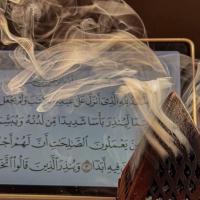 لِلَّهِ ٱلَّذِىٓ أَنزَلَ عَلَىٰ عَبْدِهِ وَلَمْ يَجْعَل
لِّيُنذِرَ بَأْسًا شَدِيدًا مِّن لَّدُنْهُ وَيُبَشِّ
يَعْمَلُونَ ٱلصَّٰلِحَٰتِ أَنَّ لَهُمْ أَجْ
فِيهِ أَبَدًا ٣ وَيُنذِرَ ٱلَّذِينَ قَالُوا۟ ٱتَّخَ